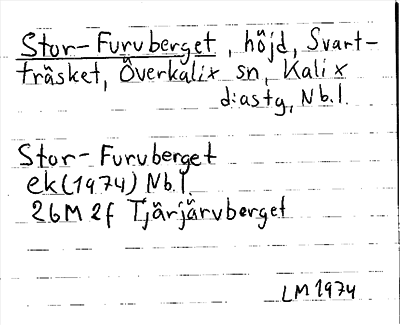 Stor-Furuberget, höjd, Svart-
träsket, Överkalix sn, Kalix
d:astg, Nb.l.
Stor-Furuberget
ek(1974) Nb.l.
26M 2f Tjärjärvberget
LM 1974